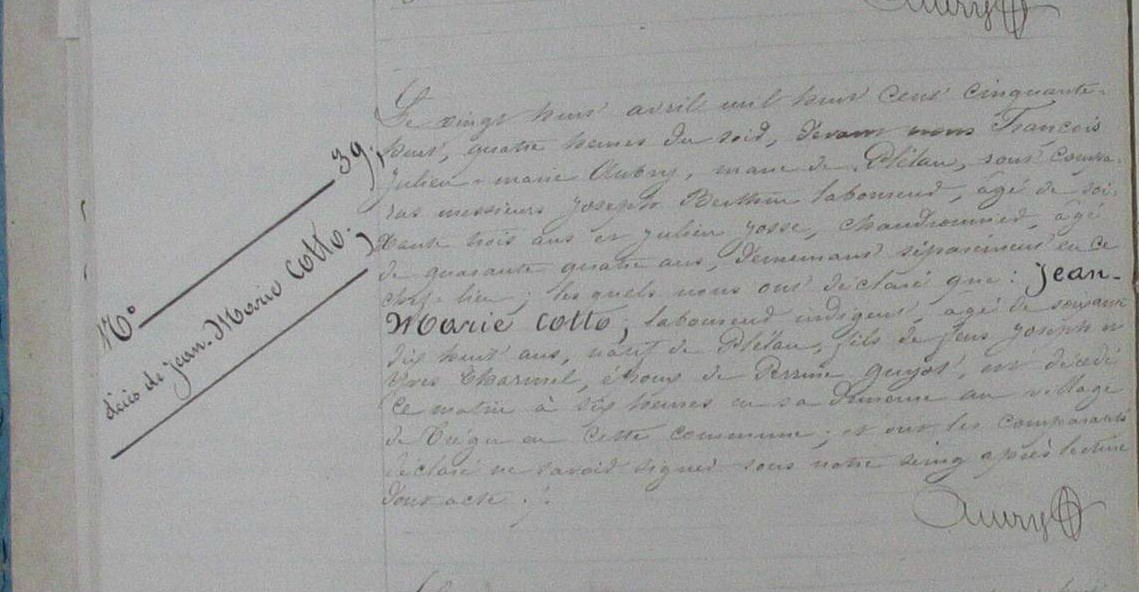 Aubry
N° 39.
décès de jean-Marie Cotto.
Le vingt huit avril mil huit cent cinquante-
huit, quatre heures du soir, devant nous François
Julien-marie Aubry, maire de Plélan, sont compa-
rus messieurs Joseph Berthier laboureur, âgé de soi-
xante trois ans et Julien Josse, chaudronnier, âgé
de quarante quatre ans, demeurant séparément en ce
chef-lieu; les quels nous ont déclaré que: Jean-
Marie Cotto, laboureur indigent, âgé de soixante
dix huit ans, natif de Plélan, fils de feus Joseph et
Yves Charmel, époux de Perrine guyot, est décédé
ce matin à six heures en sa demeure au village
de Trégu en cette commune; et ont les comparants
déclaré ne savoir signer sous notre seing après lecture
dont acte.
Aubry